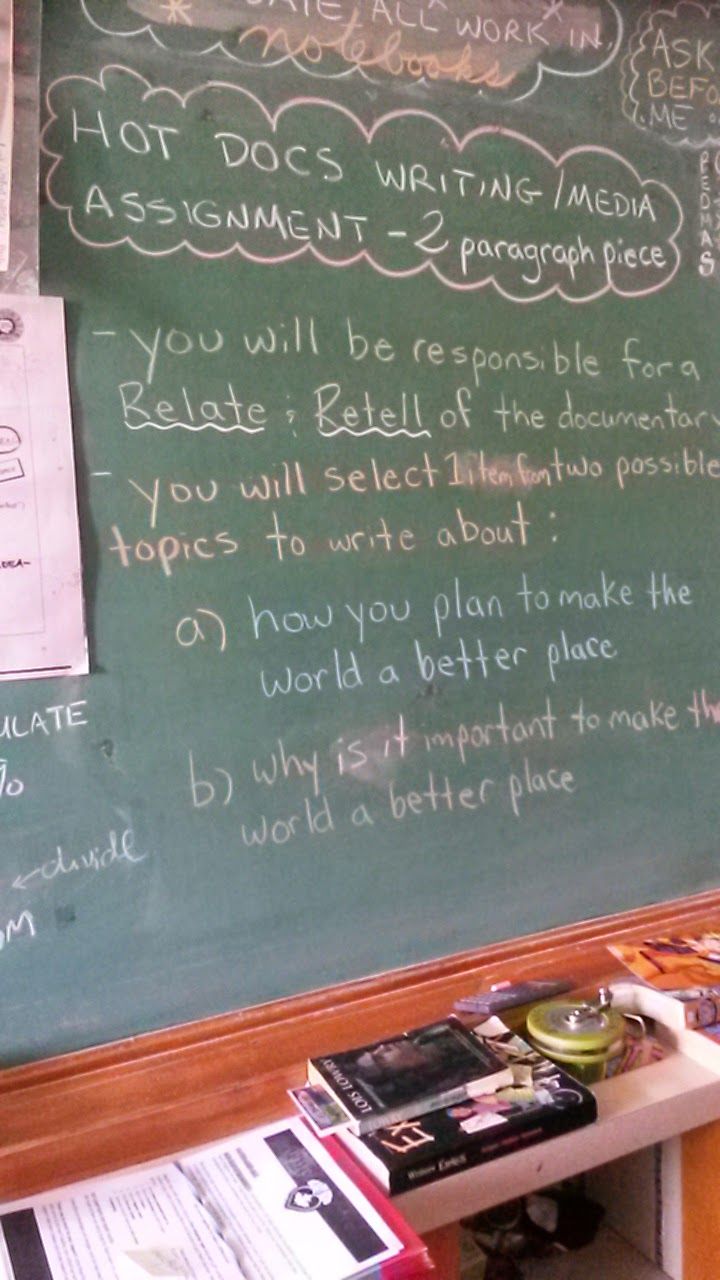 ALL WORK IN
notebooks
ASK
ME
HOT DOCS WRITING/MEDIA
ASSIGNMENT - 2 paragraph piece
- you will be responsible for a
Relate & Retell of the documentary
- you will select 1 item from two possible
topics to write about:
a) how you plan to make the
world a better place
b) why is it important to make the
world a better place
ULATE
%
← divide
OM
LOIS LOWRY
EX